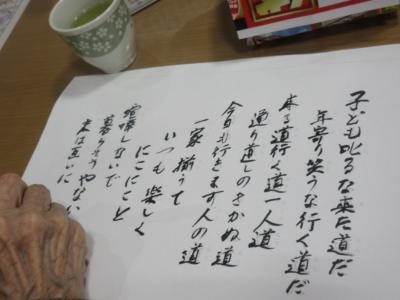 子ども叱るな来た道だ
年寄り笑うな行く道だ
来る道行く道一人道
通り直しのきかぬ道
今日も行きます人の道
一家揃うて
いつも楽しく
にこにこと
喧嘩しないで
暮そうやない
末は互いに